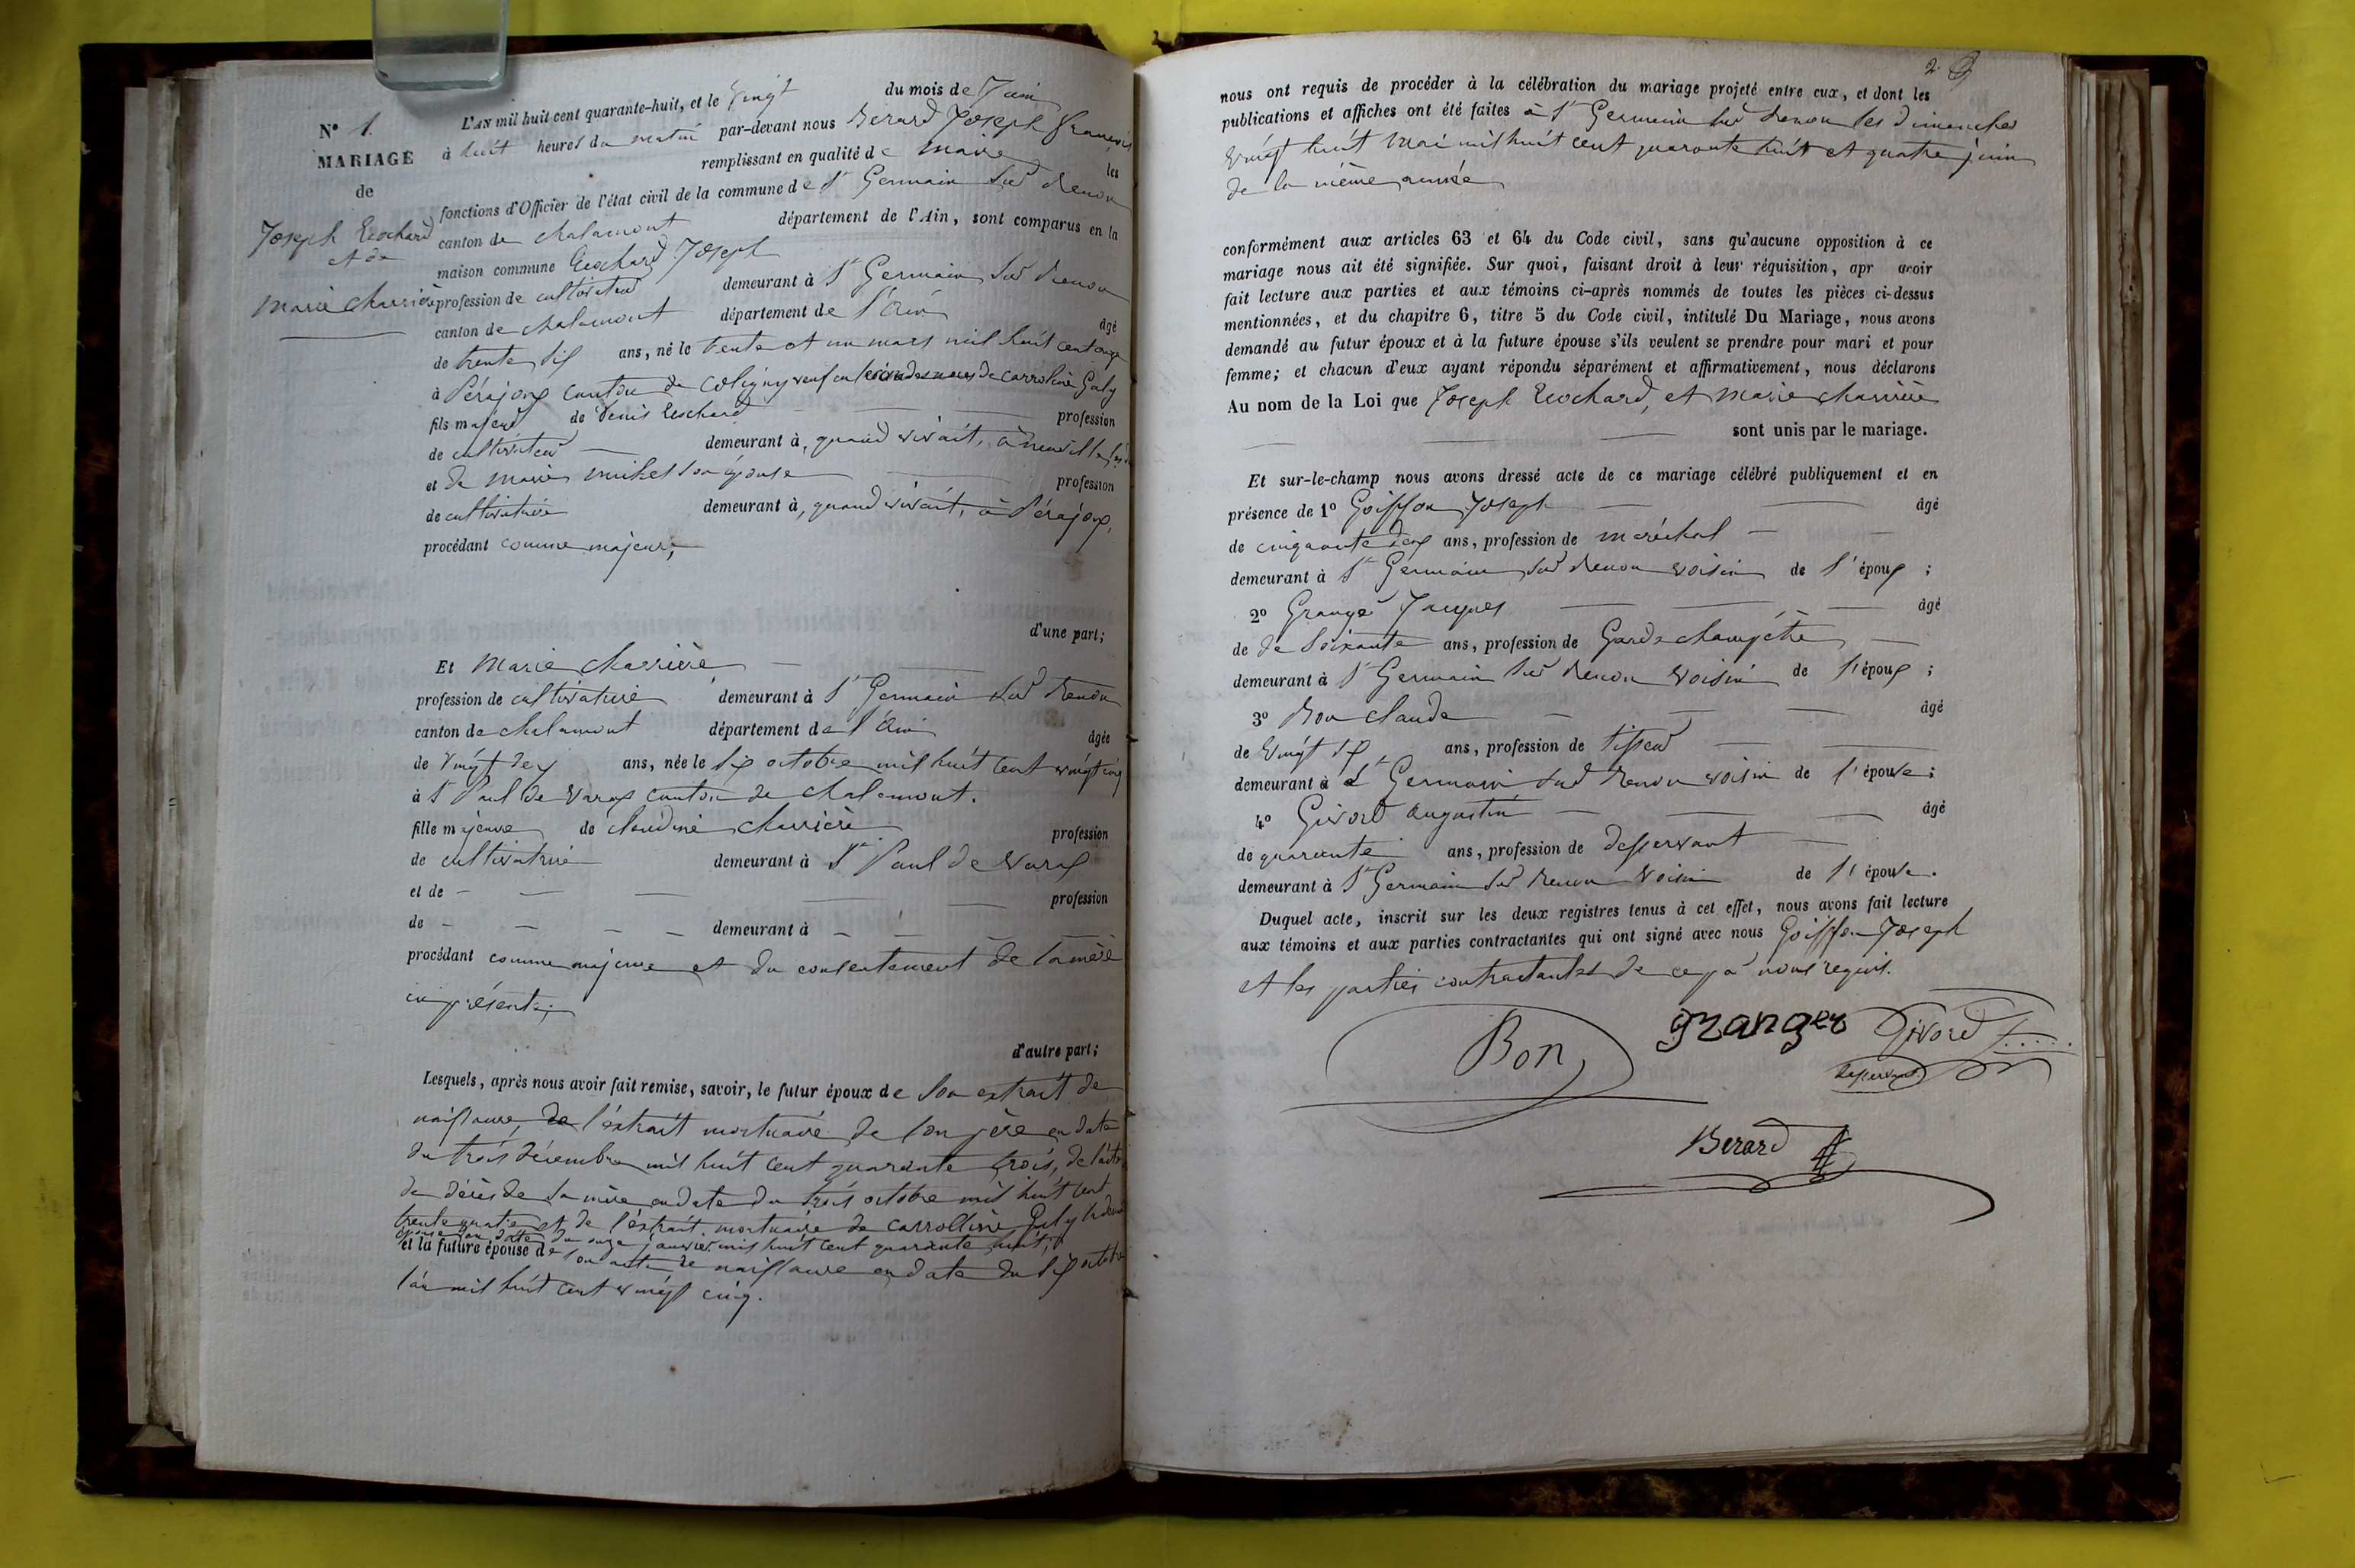 N° 1.
MARIAGE
de
Joseph Rochard
et de
Marie Charrière
L'AN mil huit cent quarante-huit, et le vingt du mois de Juin
à huit heures du matin par-devant nous Berard Joseph François
remplissant en qualité de maire les
fonctions d'Officier de l'état civil de la commune de St Germain sur Renon
canton de chalamont département de l'Ain, sont comparus en la
maison commune Rochard Joseph
profession de cultivateur demeurant à St Germain sur Renon
canton de chalamont département de l'Ain âgé
de trente six ans, né le trente et un mars mil huit cent onze
à Pérajoux canton de coligny veuf en de carroline Galy
fils majeur de Denis Rochard profession
de cultivateur demeurant à, quand vivait, à neuville
et de marie michel son épouse profession
de cultivatrice demeurant à, quand vivait, à Pérajoux,
procédant comme majeur;
d'une part;
Et Marie charrière
profession de cultivatrice demeurant à St Germain sur Renon
canton de chalamont département de l'Ain âgée
de vingt deux ans, née le six octobre mil huit cent vingt cinq
à St Paul de Varax canton de chalamont.
fille majeure de claudine charrière profession
de cultivatrice demeurant à St Paul de Varax
et de - profession
de - demeurant à -
procédant comme majeure et du consentement de sa mère
ici présente;
d'autre part;
Lesquels, après nous avoir fait remise, savoir, le futur époux de son extrait de
naissance, de l'extrait mortuaire de son père en date
du trois décembre mil huit cent quarante trois, de l'acte
de décès de sa mère en date du trois octobre mil huit cent
trente quatre et de l'extrait mortuaire de carrolline Galy
épouse en date du onze janvier mil huit cent quarante huit;
et la future épouse de son acte de naissance en date du six octobre
l'an mil huit cent vingt cinq.
2
nous ont requis de procéder à la célébration du mariage projeté entre eux, et dont les
publications et affiches ont été faites à St Germain sur Renon les dimanches
vingt huit mai mil huit cent quarante huit et quatre juin
de la même année
conformément aux articles 63 et 64 du Code civil, sans qu'aucune opposition à ce
mariage nous ait été signifiée. Sur quoi, faisant droit à leur réquisition, apr avoir
fait lecture aux parties et aux témoins ci-après nommés de toutes les pièces ci-dessus
mentionnées, et du chapitre 6, titre 5 du Code civil, intitulé Du Mariage, nous avons
demandé au futur époux et à la future épouse s'ils veulent se prendre pour mari et pour
femme; et chacun d'eux ayant répondu séparément et affirmativement, nous déclarons
Au nom de la Loi que Joseph Rochard, et Marie charrière
sont unis par le mariage.
Et sur-le-champ nous avons dressé acte de ce mariage célébré publiquement et en
présence de 1° Goiffon Joseph âgé
de cinquante deux ans, profession de maréchal
demeurant à St Germain sur Renon voisin de l'époux;
2° Granger Jacques âgé
de de soixante ans, profession de Garde champêtre
demeurant à St Germain sur Renon voisin de l'époux;
3° Bon claude âgé
de vingt six ans, profession de tisseur
demeurant à St Germain sur Renon voisin de l'épouse;
4° Givord Augustin âgé
de quarante ans, profession de desservant
demeurant à St Germain sur Renon voisin de l'épouse.
Duquel acte, inscrit sur les deux registres tenus à cet effet, nous avons fait lecture
aux témoins et aux parties contractantes qui ont signé avec nous Goiffon Joseph
et les parties contractantes de ce par nous requis.
Bon
Granger
Givord
desservant
Berard